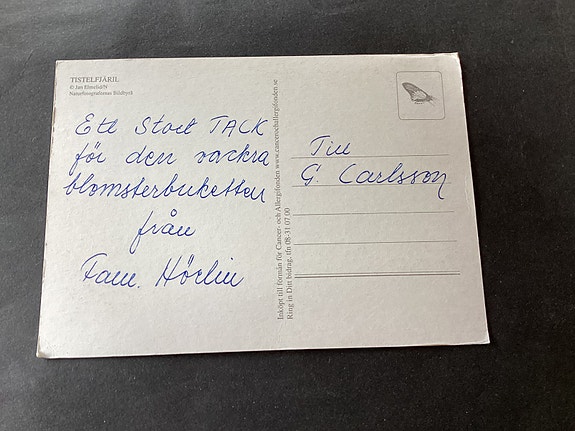 TISTELFJÄRIL
© Jan Elmelid/N
Naturfotografernas Bildbyrå
Ett Stort TACK
för den vackra
blomsterbuketten
från
Fam. Hörlin
Inköpt till förmån för Cancer- och Allergifonden www.cancerochallergifonden.se
Ring in Ditt bidrag, tfn 08-31 07 00
Till
G. Carlsson